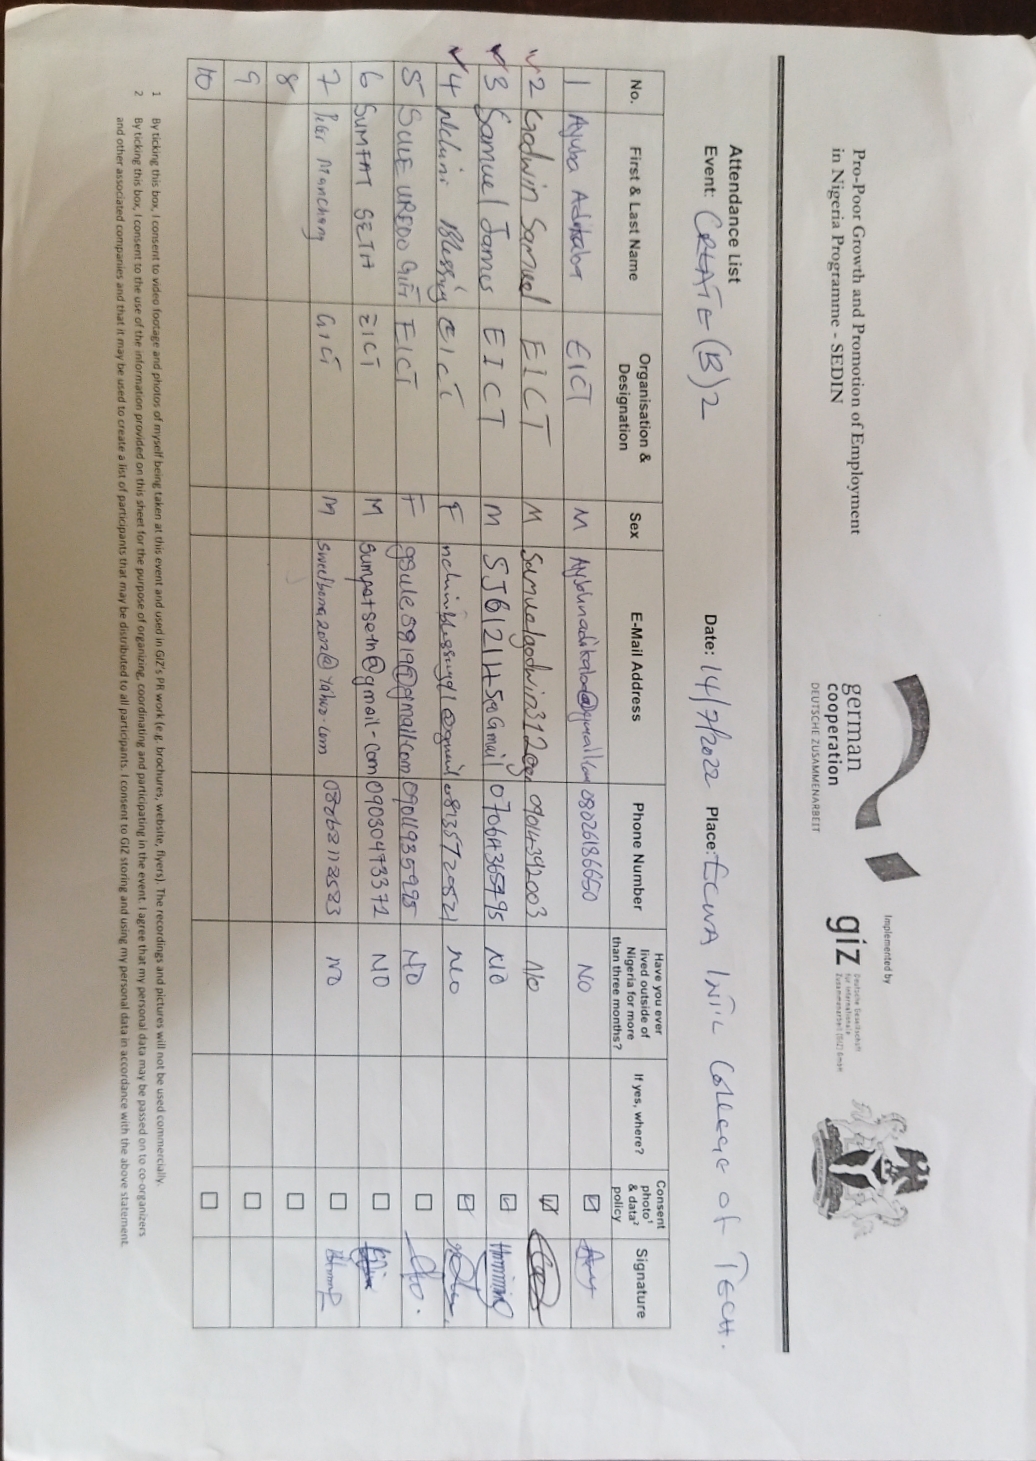 Pro-Poor Growth and Promotion of Employment
in Nigeria Programme - SEDIN
german
cooperation
DEUTSCHE ZUSAMMENARBEIT
Implemented by
giz
Deutsche Gesellschaft
für Internationale
Zusammenarbeit (GIZ) GmbH
Attendance List
Event: CREATE (B) 2 Date: 14/7/2022 Place: ECWA INT'L COLLEGE OF TECH.
No. First & Last Name Organisation & Designation Sex E-Mail Address Phone Number Have you ever lived outside of Nigeria for more than three months? If yes, where? Consent photo¹ & data² policy Signature
1 Ayuba EICT M 08026186650 NO
2 Godwin Samuel EICT M 09014392003 NO
3 Samuel James EICT M SJ612145@Gmail 07064365795 NO
4 Nchini Blessing EICT F NO
5 SULE UREDO GIFT EICT F gsule5819@gmail.com 09011935995 NO
6 SUMFAT SETH EICT M 09030473372 NO
7 Peter Manchang M NO
8
9
10
1 By ticking this box, I consent to video footage and photos of myself being taken at this event and used in GIZ's PR work (e.g. brochures, website, flyers). The recordings and pictures will not be used commercially.
2 By ticking this box, I consent to the use of the information provided on this sheet for the purpose of organizing, coordinating and participating in the event. I agree that my personal data may be passed on to co-organizers
and other associated companies and that it may be used to create a list of participants that may be distributed to all participants. I consent to GIZ storing and using my personal data in accordance with the above statement.